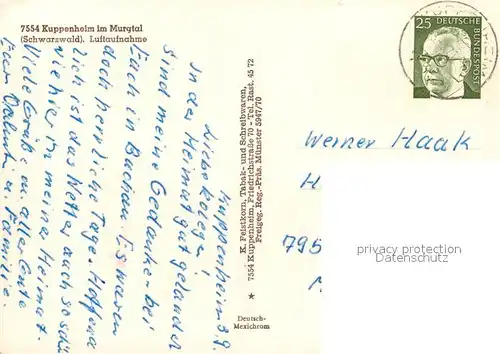 7554 Kuppenheim im Murgtal
(Schwarzwald). Luftaufnahme
Kuppenheim 3.9.
Liebe Kolegen,
In der Heimat gut gelandet
sind meine Gedanken bei
Euch in Buchau. Es waren
doch herrliche Tage. Hoffend
lich ist das Wetter auch so schön
wie hier in meine Heimat.
Viele Grüße u. alles Gute
Euer u. Familie.
K. Feistkorn, Tabak- und Schreibwaren,
7554 Kuppenheim, Friedrichstraße 70 - Tel. Rast. 45 72
Freigeg. Reg.-Präs. Münster 5947/70
Deutsch-
Mexichrom
25 DEUTSCHE
BUNDESPOST
Werner Haak
H
795
privacy protection
Datenschutz